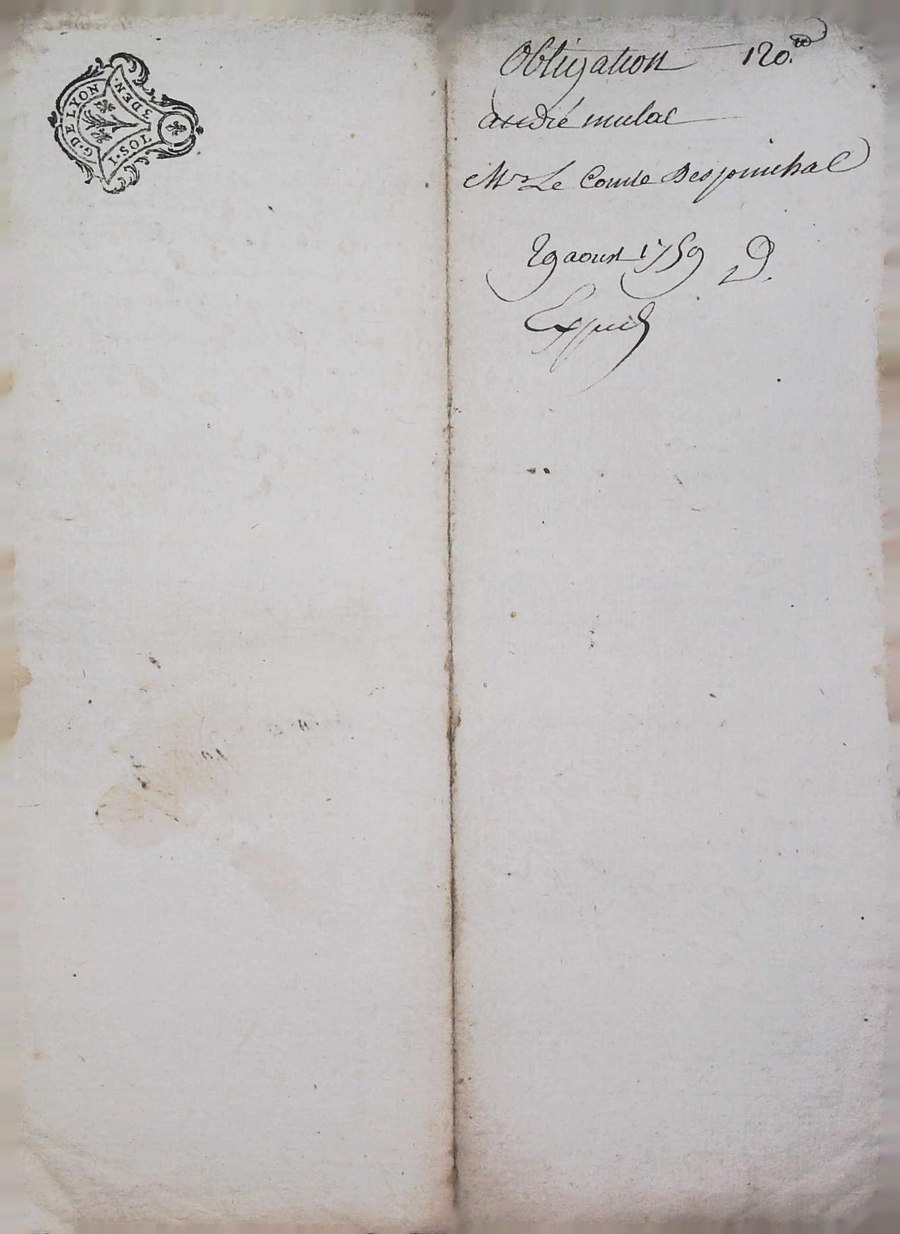 G. DE LYON
1. SOL 3 DEN.
Obligation 120.tt
andré mulat
Mr Le Comte Despinchal
29 aoust 1759
Expéd